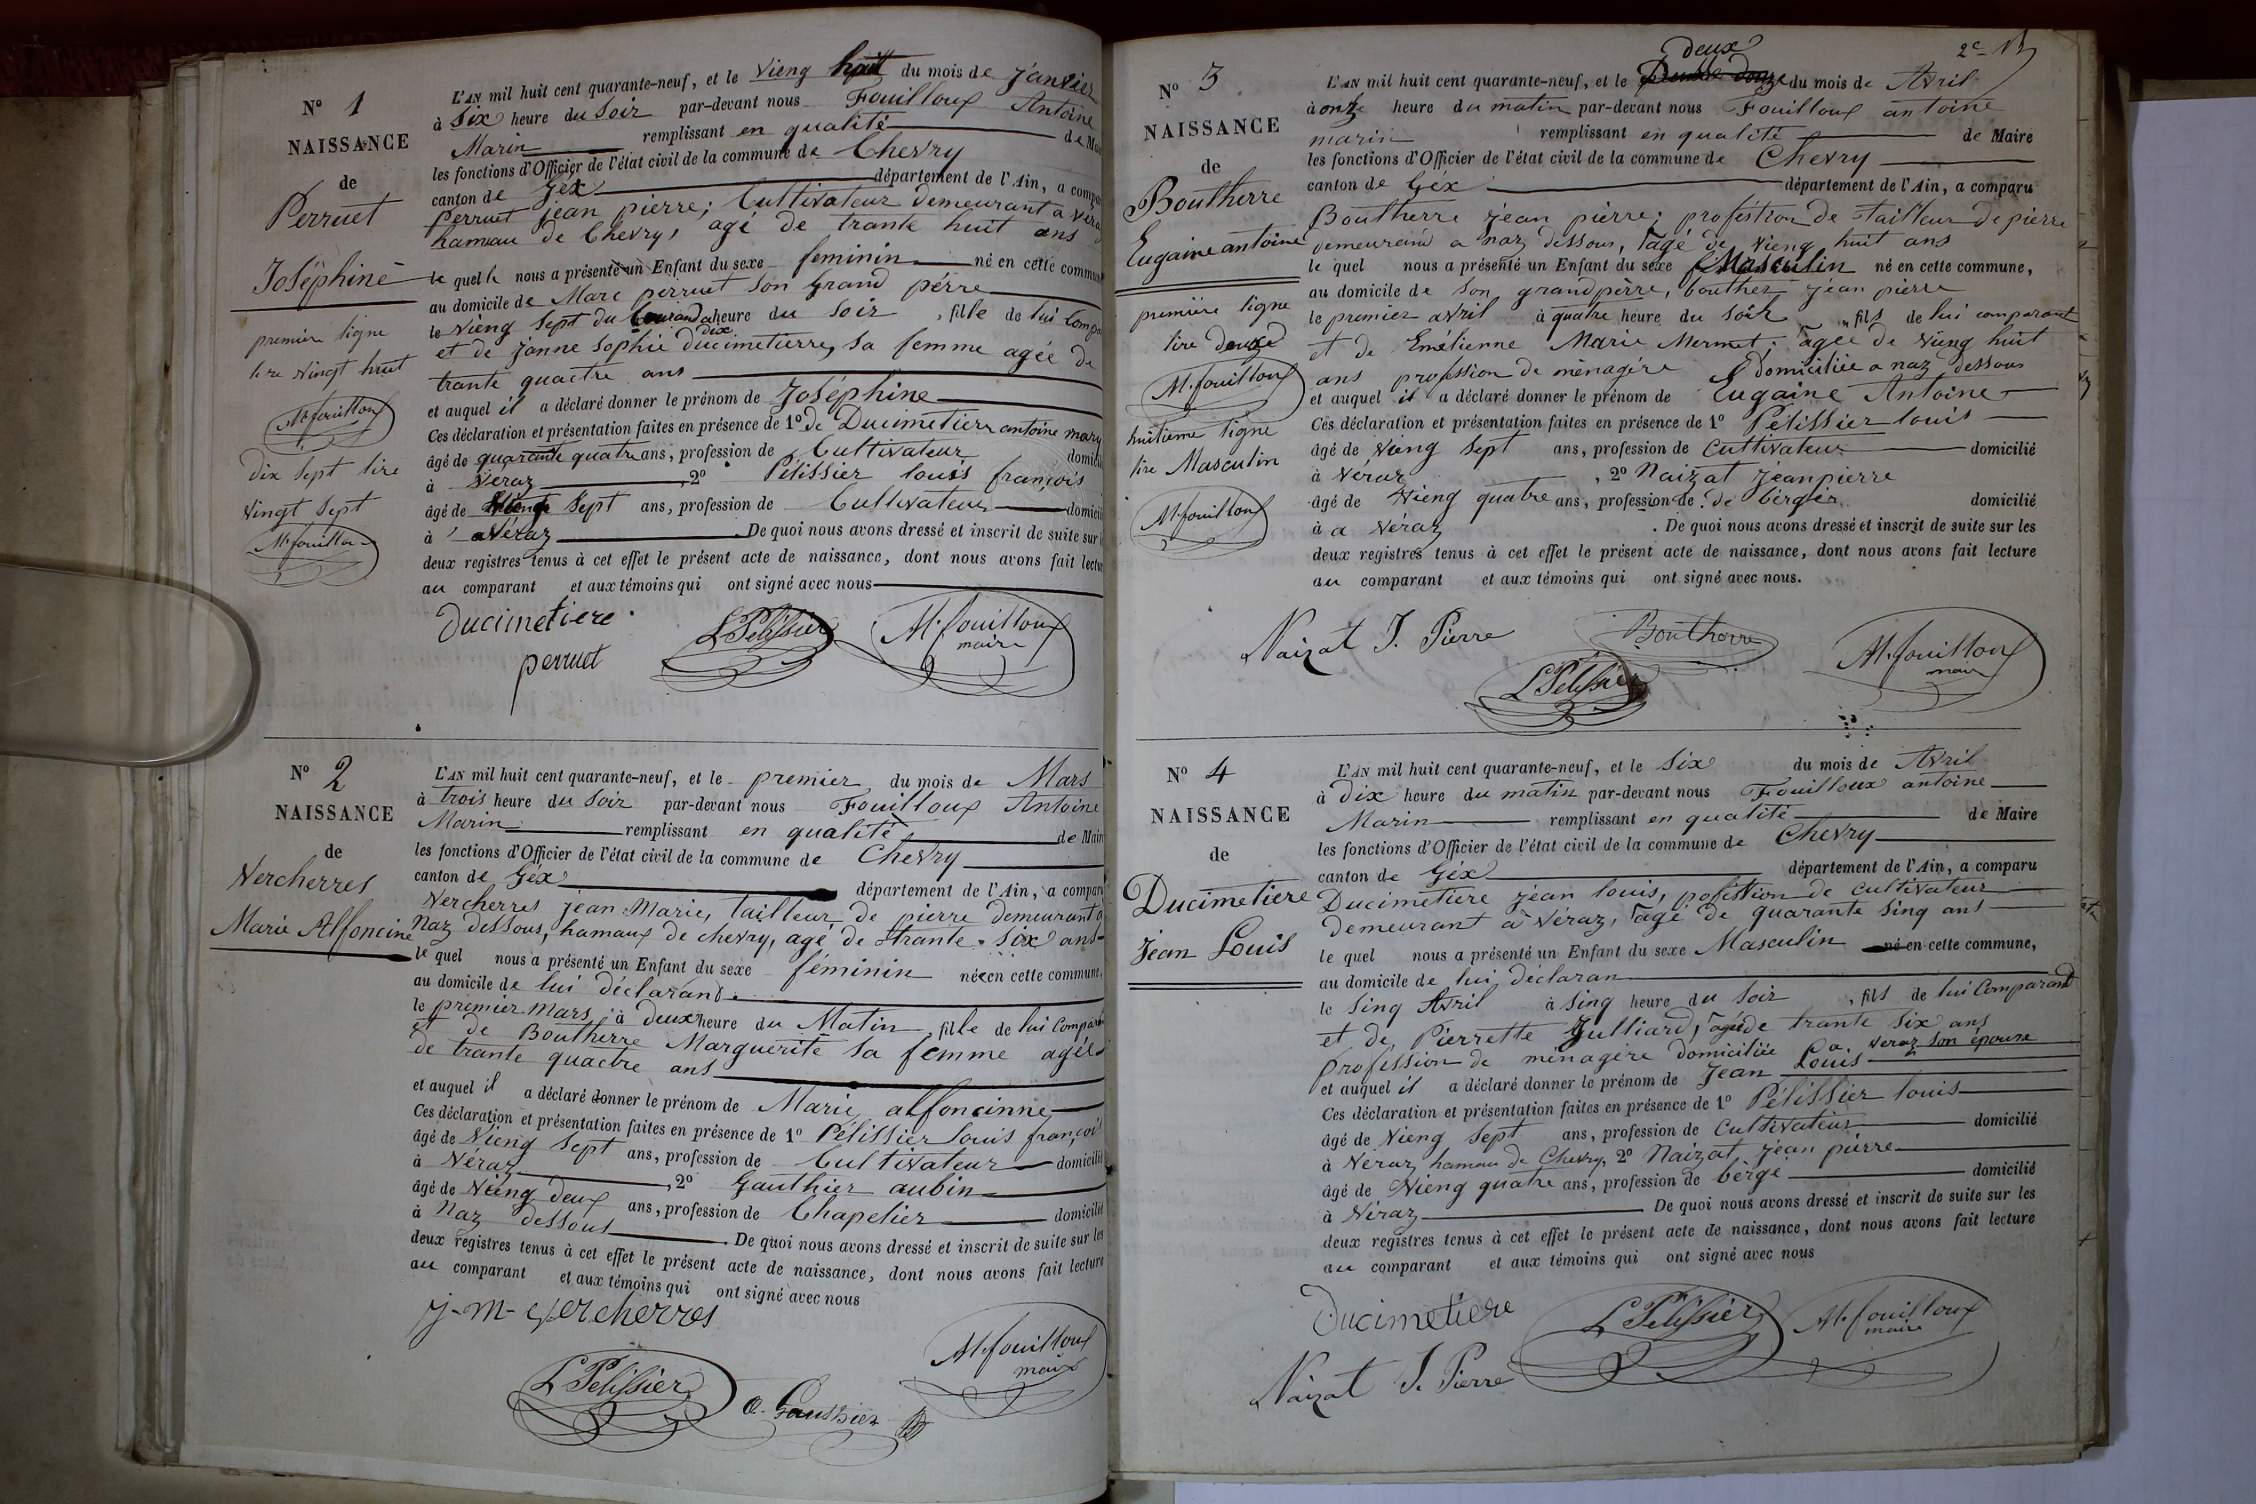 N° 1
NAISSANCE
de
Perruet
Joséphine
première ligne
lire vingt huit
At. fouilloux
dix sept lire
vingt sept
At. fouilloux
L'AN mil huit cent quarante-neuf, et le vieng huit du mois de janvier
à six heure du soir par-devant nous Fouilloux Antoine
Marin remplissant en qualité de Mai
les fonctions d'Officier de l'état civil de la commune de Chevry
canton de Gex département de l'Ain, a compa
Perruet jean pierre; Cultivateur demeurant a véra
hameau de Chevry, agé de trante huit ans
le quel le nous a présenté un Enfant du sexe feminin né en cette commun
au domicile de Marc perruet son Grand pérre
le vieng sept du Courand a dix heure du soir, fille de lui Compa
et de janne sophie Ducimetierre, sa femme agée de
trante quactre ans
et auquel il a déclaré donner le prénom de Joséphine
Ces déclaration et présentation faites en présence de 1° de Ducimetiere antoine mary
âgé de quarante quatre ans, profession de Cultivateur domicili
à Véraz, 2° Pélissier louis françois
âgé de vieng sept ans, profession de Cultivateur domicili
à a Véraz. De quoi nous avons dressé et inscrit de suite sur
deux registres tenus à cet effet le présent acte de naissance, dont nous avons fait lectur
au comparant et aux témoins qui ont signé avec nous
Ducimetiere
L Pelissier
At. fouilloux
maire
perruet
N° 2
NAISSANCE
de
Vercherres
Marie Alfoncine
L'AN mil huit cent quarante-neuf, et le premier du mois de Mars
à trois heure du soir par-devant nous Fouilloux Antoine
Marin remplissant en qualité de Maire
les fonctions d'Officier de l'état civil de la commune de Chevry
canton de Géx département de l'Ain, a comparu
Vercherres jean Marie, tailleur de pierre demeurant a
Naz dessous, hamaux de chevry, agé de trante six ans
le quel nous a présenté un Enfant du sexe féminin née en cette commune,
au domicile de lui déclarant.
le premier mars à deux heure du Matin, fille de lui Compara
et de Boutherre Marguerite sa femme agée
de trante quactre ans
et auquel il a déclaré donner le prénom de Marie alfoncinne
Ces déclaration et présentation faites en présence de 1° Pélissier Louis françois
âgé de Vieng sept ans, profession de Cultivateur domicilié
à Véraz, 2° Gauthier aubin
âgé de Vieng deux ans, profession de Chapelier domicilié
à Naz dessous. De quoi nous avons dressé et inscrit de suite sur les
deux registres tenus à cet effet le présent acte de naissance, dont nous avons fait lecture
au comparant et aux témoins qui ont signé avec nous
j-m-vercherres
At. fouilloux
maire
L Pelissier
a. Gauthier
2e
N° 3
NAISSANCE
de
Boutherre
Eugaine antoine
première ligne
lire deuxe
At. fouilloux
huitième ligne
lire Masculin
At. fouilloux
deux
L'AN mil huit cent quarante-neuf, et le du mois de Avril
à onze heure du matin par-devant nous Fouilloux antoine
marin remplissant en qualité de Maire
les fonctions d'Officier de l'état civil de la commune de Chevry
canton de Géx département de l'Ain, a comparu
Boutherre jean pierre; profestion de tailleur de pierre
demeurand a naz dessous, agé de vieng huit ans
le quel nous a présenté un Enfant du sexe Masculin né en cette commune,
au domicile de son grandpèrre, bouther jean pierre
le premier avril à quatre heure du soir, fils de lui comparant
et de Emélienne Marie Mermet; agée de vieng huit
ans profession de ménagére domiciliée a naz dessous
et auquel il a déclaré donner le prénom de Eugaine Antoine
Ces déclaration et présentation faites en présence de 1° Pélissier louis
âgé de vieng sept ans, profession de cultivateur domicilié
à Véraz, 2° Naizat jeanpierre
âgé de vieng quatre ans, profession de de bérgér domicilié
à a véraz. De quoi nous avons dressé et inscrit de suite sur les
deux registres tenus à cet effet le présent acte de naissance, dont nous avons fait lecture
au comparant et aux témoins qui ont signé avec nous.
Naizat J. Pierre
Boutherre
At. fouilloux
maire
L Pelissier
N° 4
NAISSANCE
de
Ducimetiere
Jean Louis
L'AN mil huit cent quarante-neuf, et le six du mois de Avril
à dix heure du matin par-devant nous Fouilloux antoine
Marin remplissant en qualité de Maire
les fonctions d'Officier de l'état civil de la commune de Chevry
canton de Géx département de l'Ain, a comparu
Ducimetiere jean louis, pofestion de cultivateur
demeurant à véraz, agé de quarante sinq ans
le quel nous a présenté un Enfant du sexe Masculin né en cette commune,
au domicile de lui déclaran
le sinq Avril à sinq heure du soir, fils de lui Comparand
et de Pierrette Julliard, agée de trante six ans
profession de ménagére domiciliée a veraz son épouse
et auquel il a déclaré donner le prénom de Jean Louis
Ces déclaration et présentation faites en présence de 1° Pélissier louis
âgé de vieng sept ans, profession de cultivateur domicilié
à Véraz hameau de Chevry, 2° Naizat jean pierre
âgé de vieng quatre ans, profession de bérge domicilié
à Véraz De quoi nous avons dressé et inscrit de suite sur les
deux registres tenus à cet effet le présent acte de naissance, dont nous avons fait lecture
au comparant et aux témoins qui ont signé avec nous
Ducimetiere
L Pelissier
At. fouilloux
maire
Naizat J. Pierre